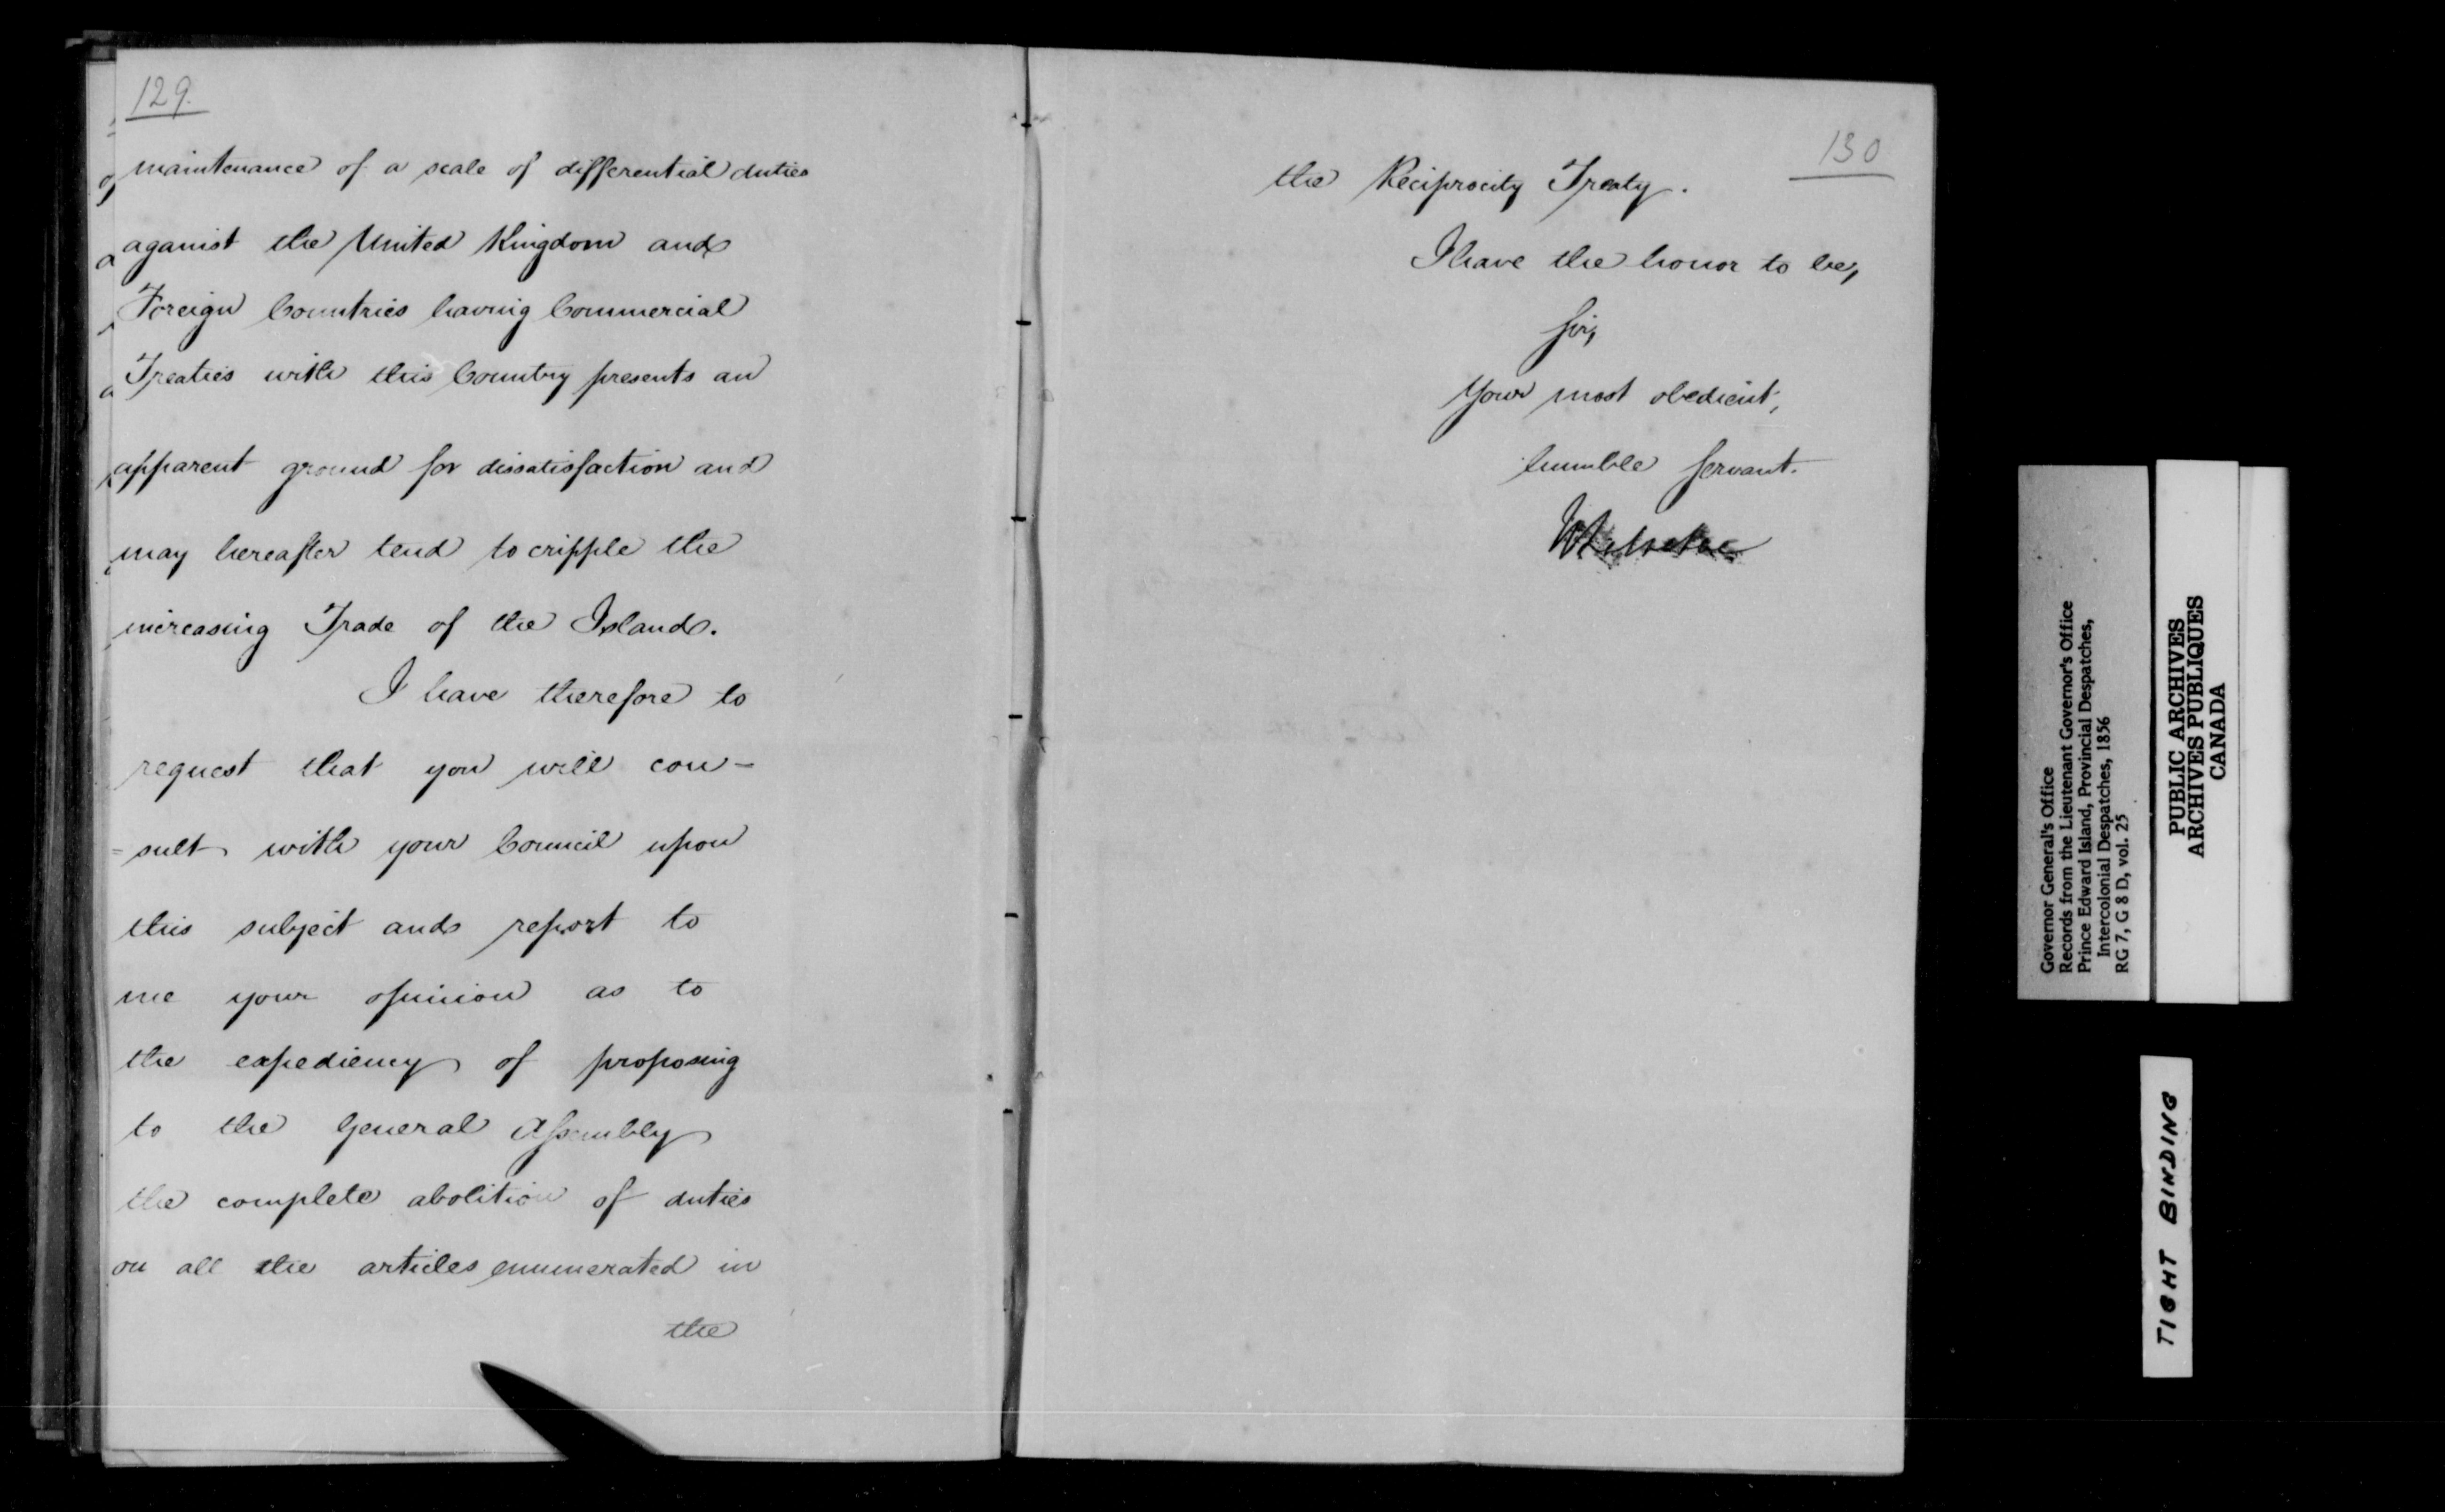 129.
maintenance of a scale of differential duties
against the United Kingdom and
Foreign Countries having Commercial
Treaties with this Country presents an
apparent ground for dissatisfaction and
may hereafter tend to cripple the
increasing Trade of the Island.
I have therefore to
request that you will con-
=sult with your Council upon
this subject and report to
me your opinion as to
the expediency of proposing
to the General Assembly
the complete abolition of duties
on all the articles enumerated in
the
130
the Reciprocity Treaty.
I have the honor to be,
Sir,
Your most obedient,
humble Servant.
Governor General's Office
Records from the Lieutenant Governor's Office
Prince Edward Island, Provincial Despatches,
Intercolonial Despatches, 1856
RG 7, G 8 D, vol. 25
PUBLIC ARCHIVES
ARCHIVES PUBLIQUES
CANADA
TIGHT BINDING